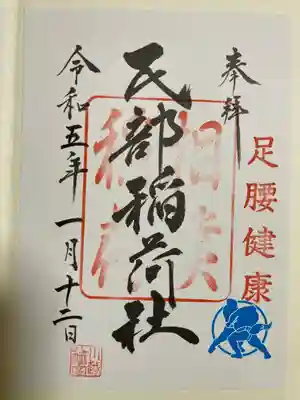 奉拝
足腰健康
民部稲荷社
令和五年 一月十二日